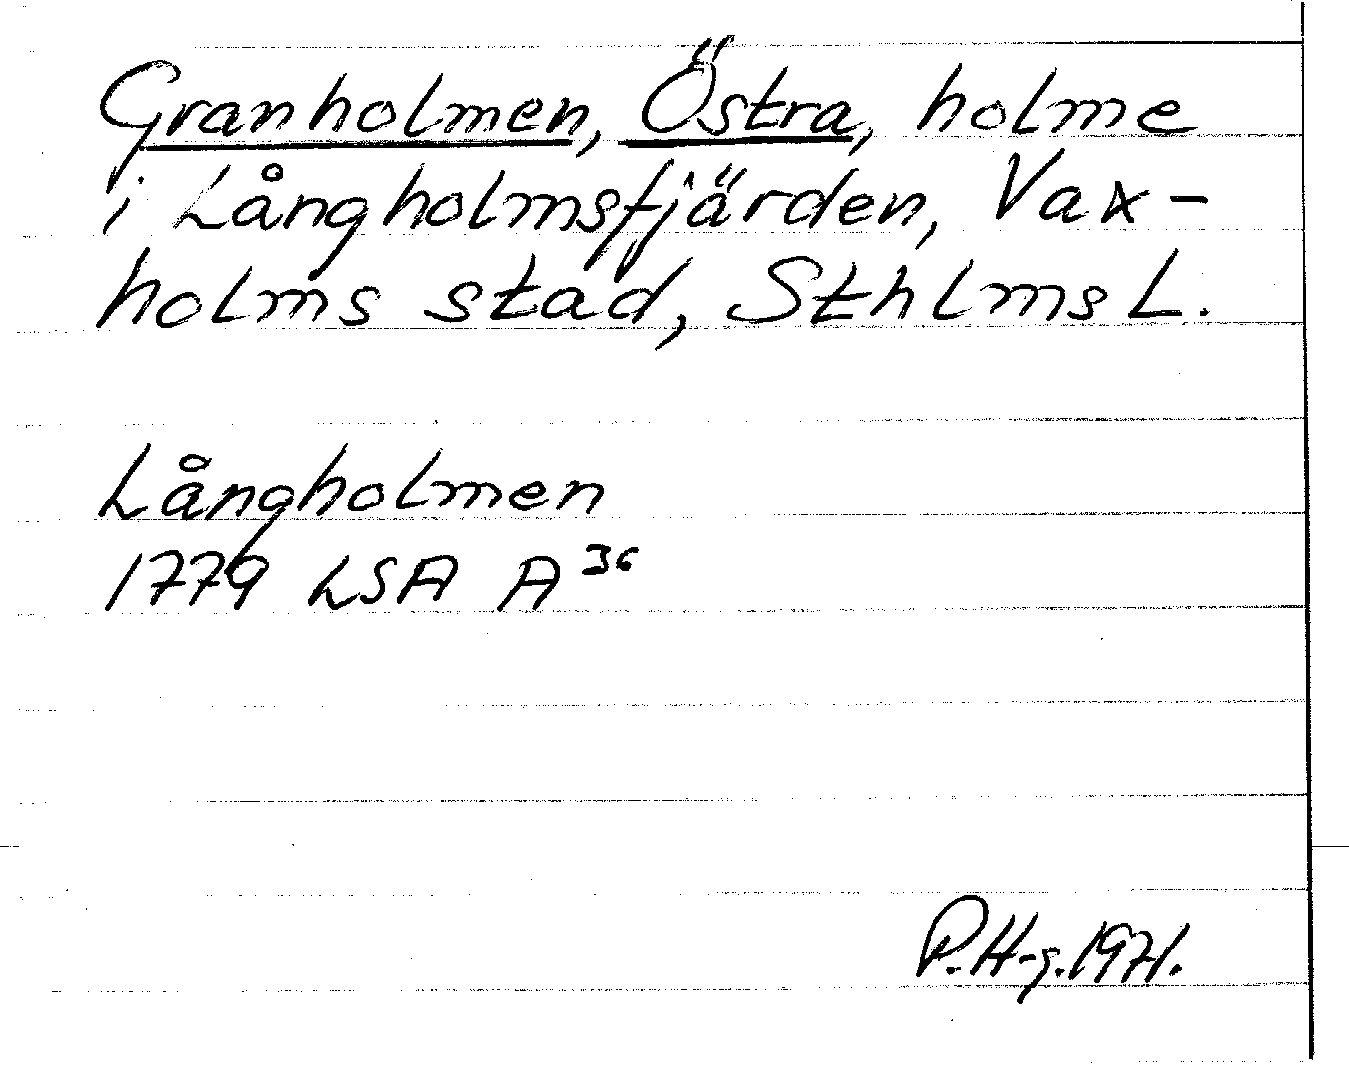 Granholmen, Östra, holme
i Långholmsfjärden, Vax-
holms stad, Sthlms L.
Långholmen
1779 LSA A³⁶
P.H-g. 1971.